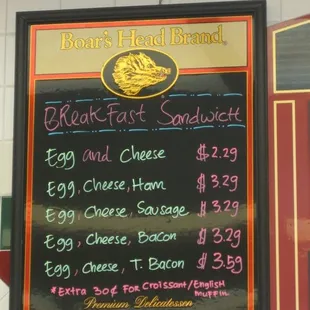 Boar's Head Brand®
BREAKFAST SANDWICH
Egg and Cheese $2.29
Egg, Cheese, Ham $3.29
Egg, Cheese, Sausage $3.29
Egg, Cheese, Bacon $3.29
Egg, Cheese, T. Bacon $3.59
*Extra 30¢ FOR CROISSANT/ENGLISH
MUFFIN
Premium Delicatessen